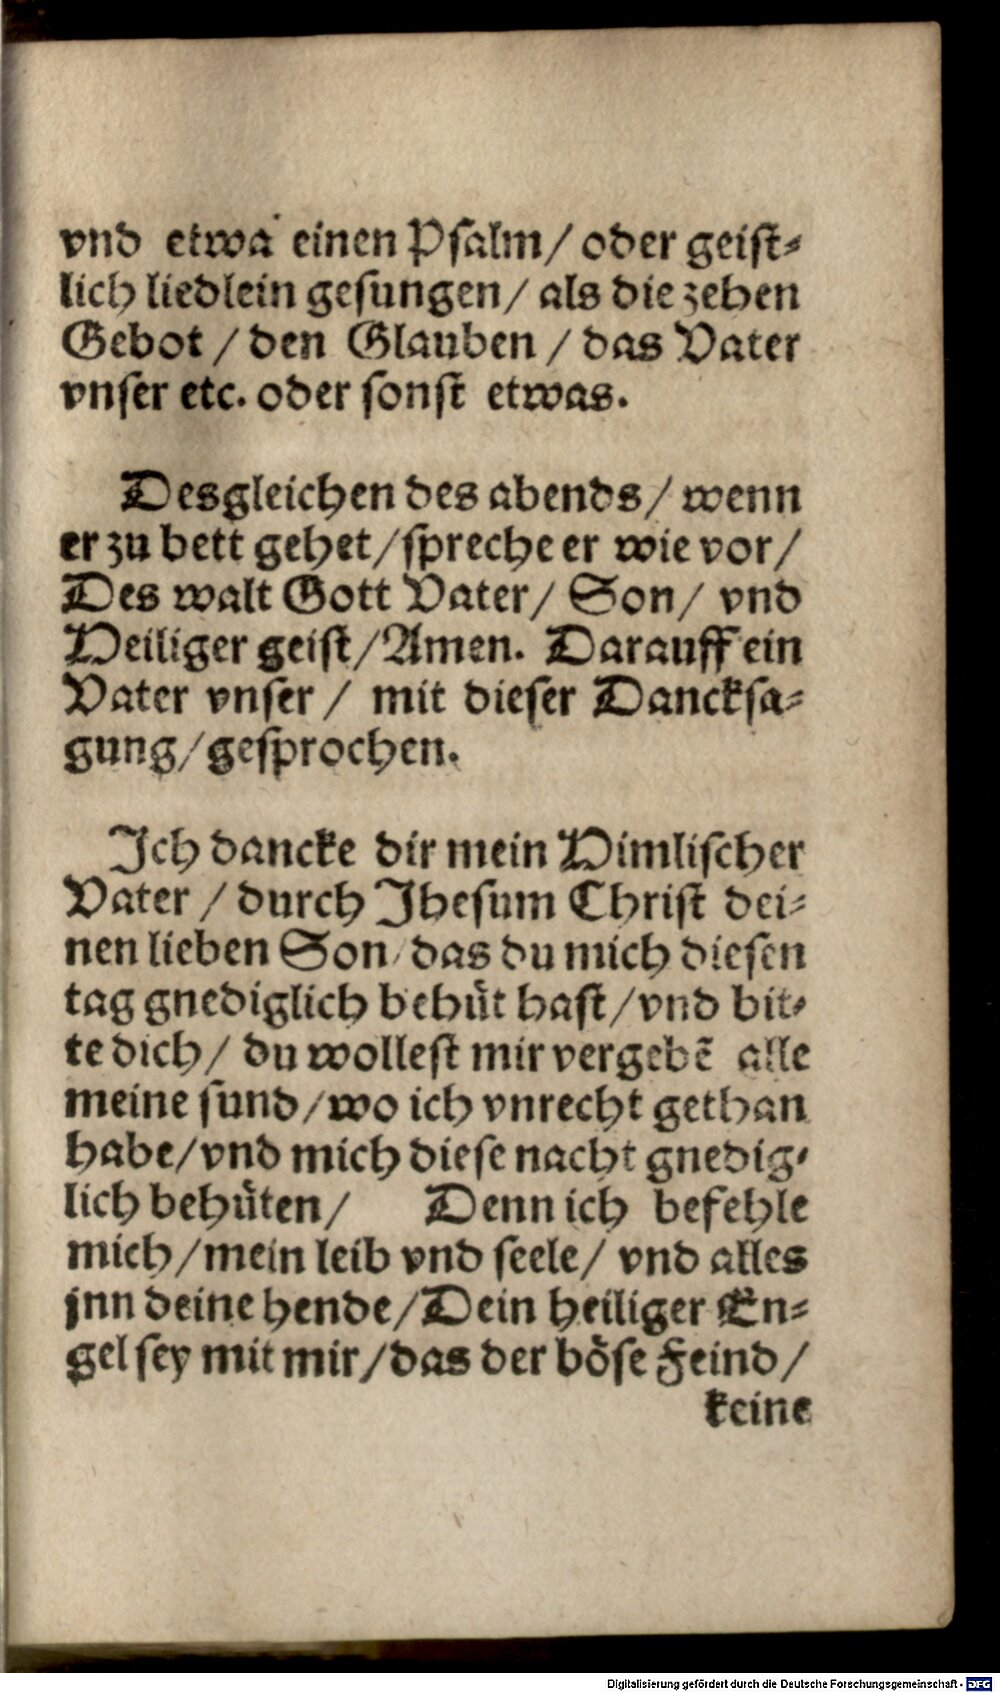 vnd etwa einen Psalm/ oder geist⸗
lich liedlein gesungen/ als die zehen
Gebot / den Glauben / das Vater
vnser etc. oder sonst etwas.
Desgleichen des abends/ wenn
er zu bett gehet/spreche er wie vor/
Des walt Gott Vater/ Son/ vnd
Heiliger geist/Amen. Darauff ein
Vater vnser / mit dieser Dancksa⸗
gung/gesprochen.
Ich dancke dir mein Himlischer
Vater / durch Jhesum Christ dei⸗
nen lieben Son/das du mich diesen
tag gnediglich behuͤt hast/vnd bit⸗
te dich/ du wollest mir vergebẽ alle
meine sund/wo ich vnrecht gethan
habe/vnd mich diese nacht gnedig⸗
lich behuͤten/ Denn ich befehle
mich/mein leib vnd seele/ vnd alles
jnn deine hende/Dein heiliger En⸗
gel sey mit mir/das der boͤse Feind/
keine
Digitalisierung gefördert durch die Deutsche Forschungsgemeinschaft - DFG